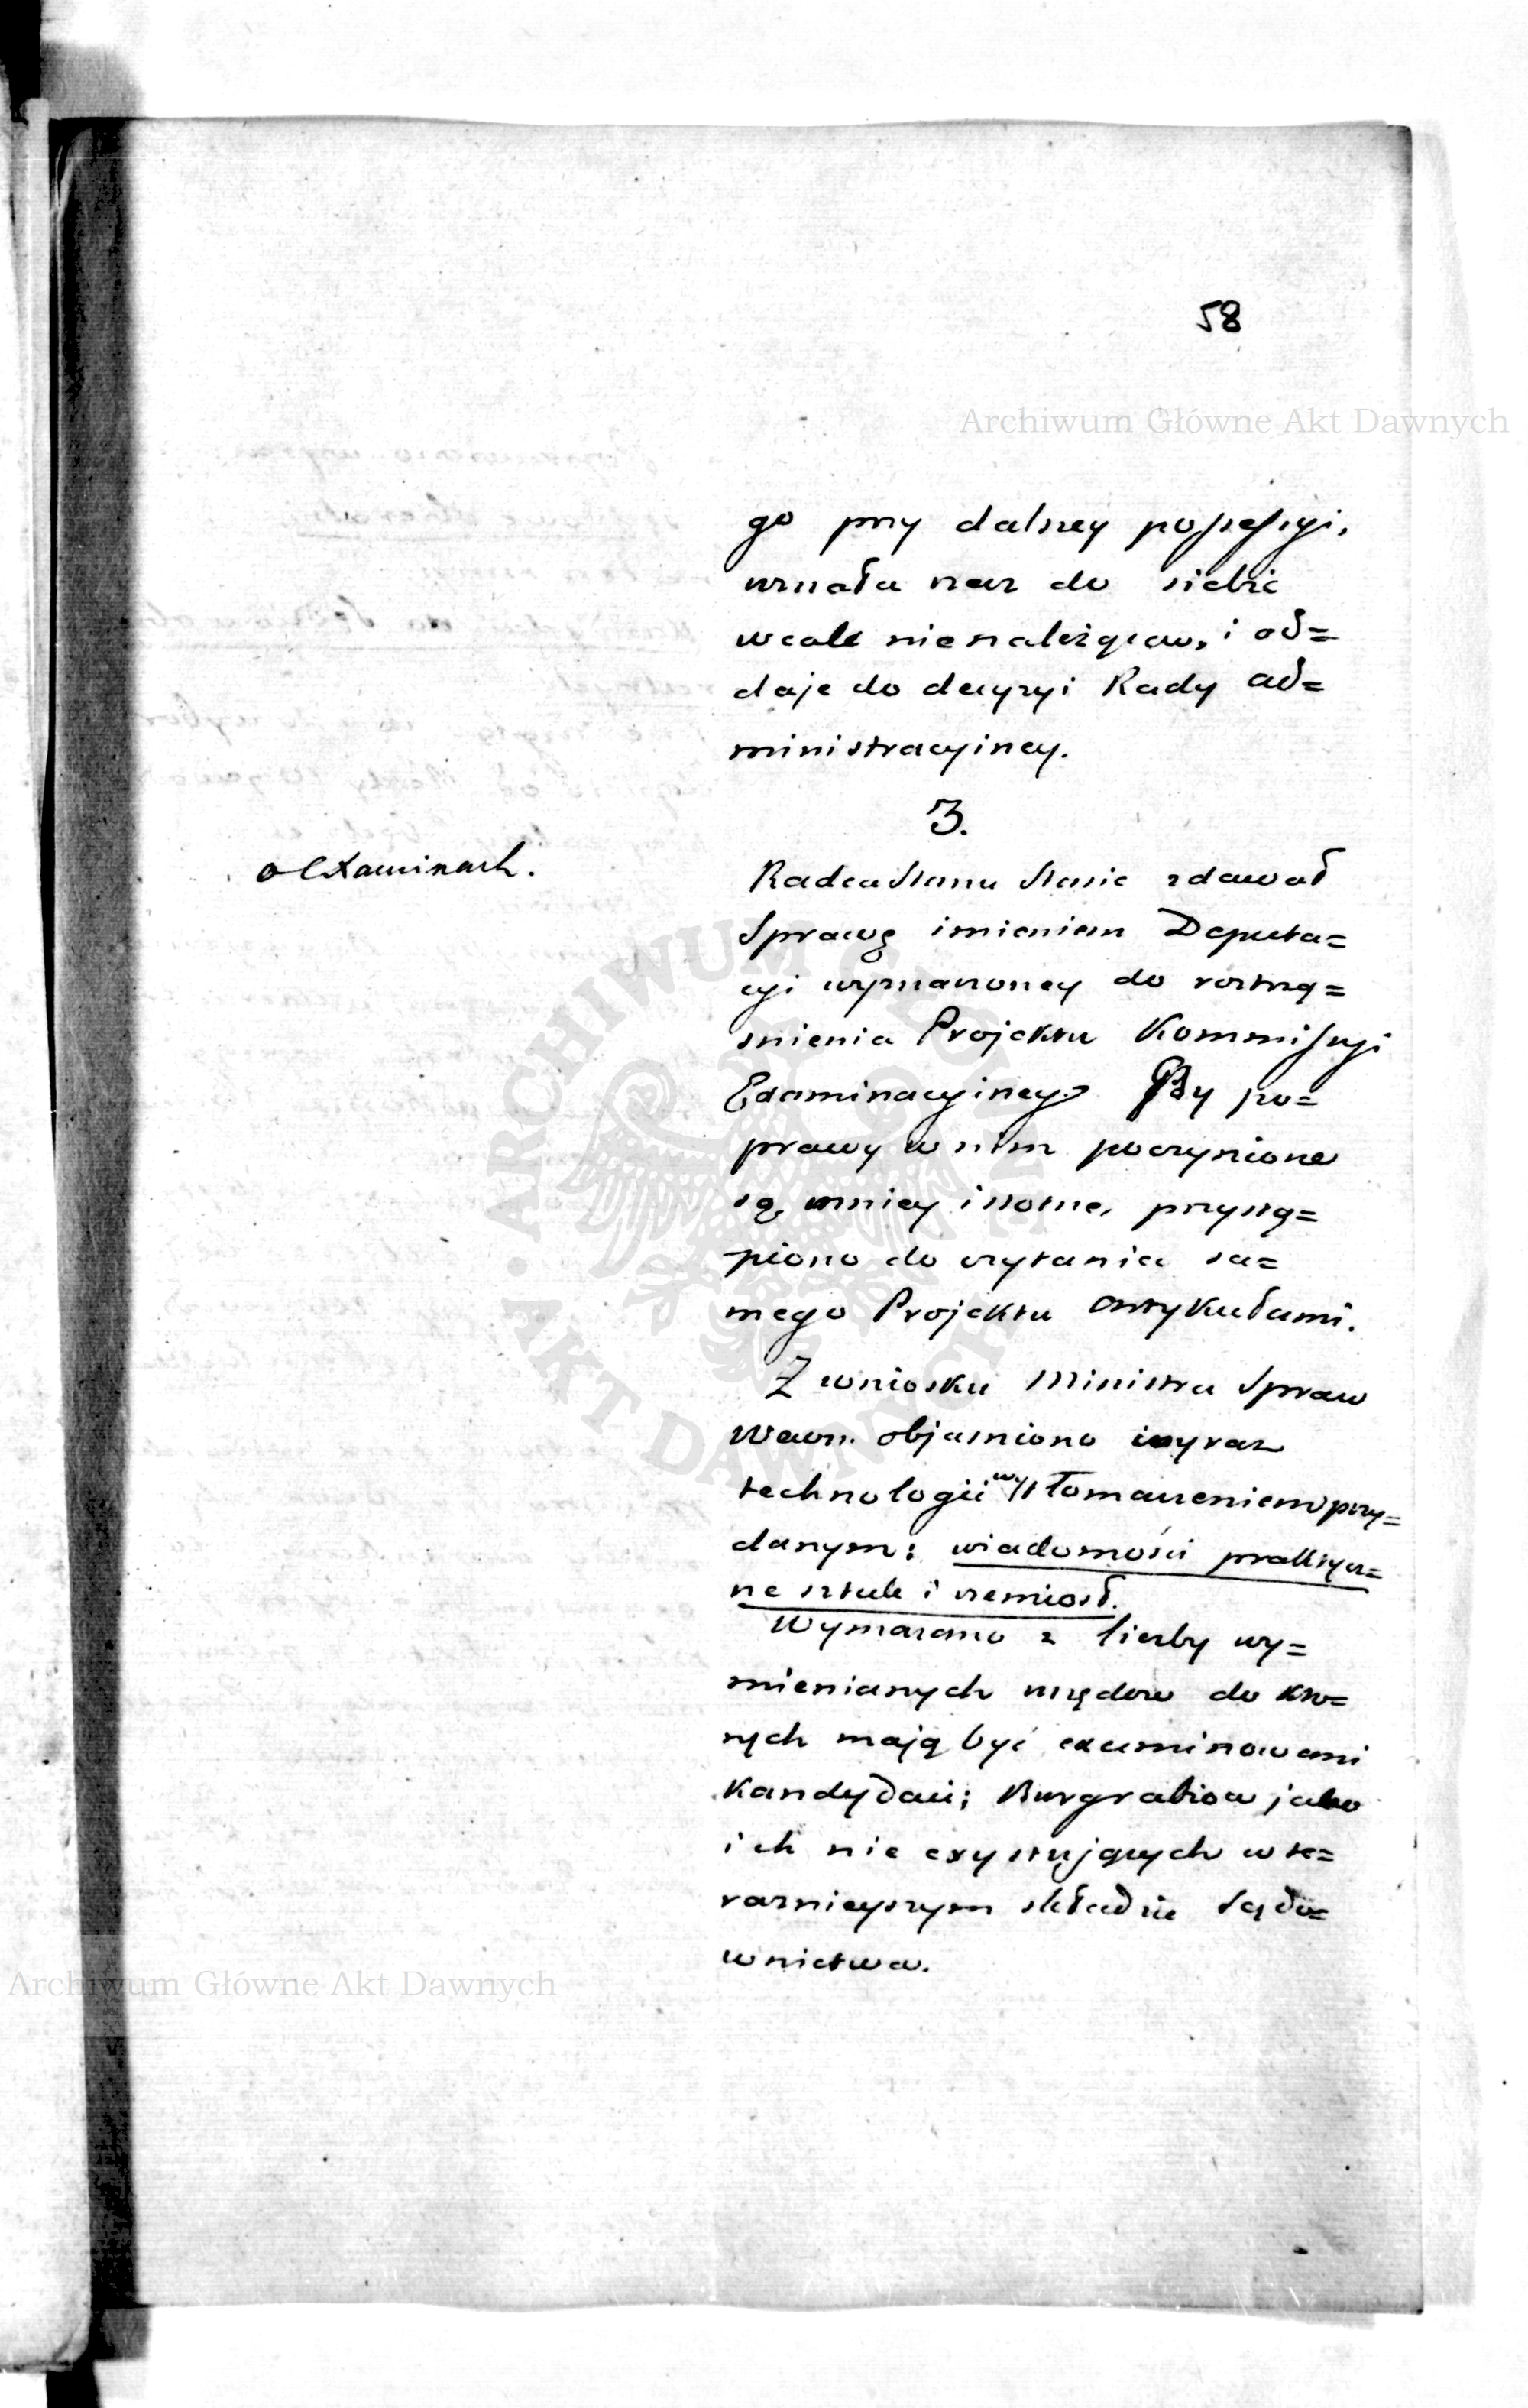 58
Archiwum Główne Akt Dawnych
go przy dalszey possessyi,
uznała rzecz do siebie
wcale nienależącą, i od=
daje do decyzyi Rady ad=
ministracyiney.
3.
o Examinach.
Radca Stanu Stasic zdawał
Sprawę imieniem Deputa=
cyi wyznaczoney do roztrzą=
śnienia Projektu Kommissyi
Examinacyiney. By po=
prawy w nim poczynione
są mniey istotne, przystą=
piono do czytania sa=
mego Projektu artykułami.
Z wniosku Ministra Spraw
Wewn. objaśniono wyraz
technologii wytłomaczeniem przy=
danym: wiadomości praktycz=
ne sztuk i rzemiosł.
Wymazano z liczby wy=
mienianych urzędów do któ=
rych mają być examinowani
Kandydaci; Burgrabiow jako
ich nie exystujących w te=
raznieyszym składzie Sądo=
wnictwa.
Archiwum Główne Akt Dawnych
ARCHIWUM GŁÓWNE
AKT DAWNYCH